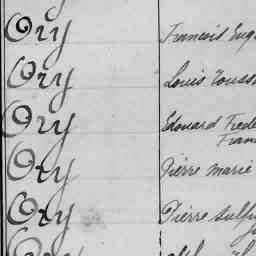 Ory Francois Eug
Ory Louis Touss
Ory Edouard Frede
Fran
Ory Pierre Marie
Ory Pierre